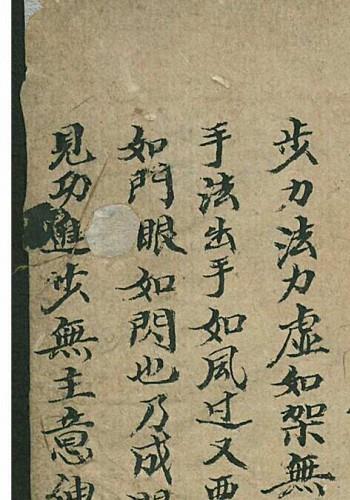 步力法力虛如架無
手法出手如風过又要
如門眼如閃也乃成
見功進步無主意